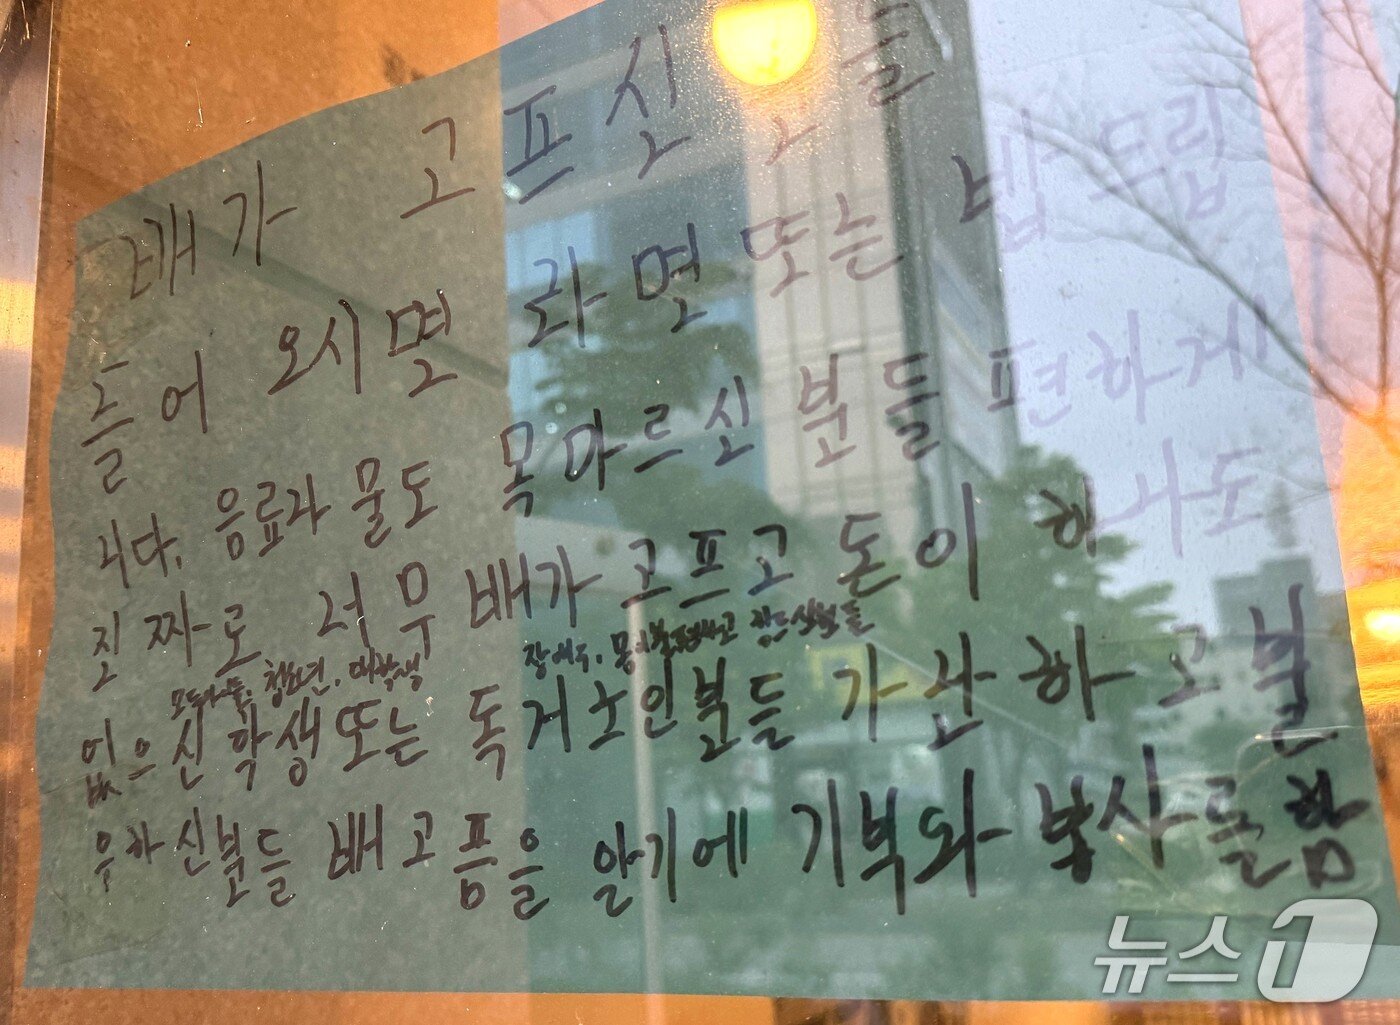 배가 고프신 분들
들어 오시면 라면 또는 밥 드립
니다. 음료과 물도 목마르신 분들 편하게
진짜로 너무 배가 고프고 돈이 하나도
청소년, 대학생
장애우, 몸이 불편하고 힘드신분들
없으신 학생 또는 독거노인분들 가난하고 불
우하신분들 배고픔을 알기에 기부와 봉사를 함
뉴스1